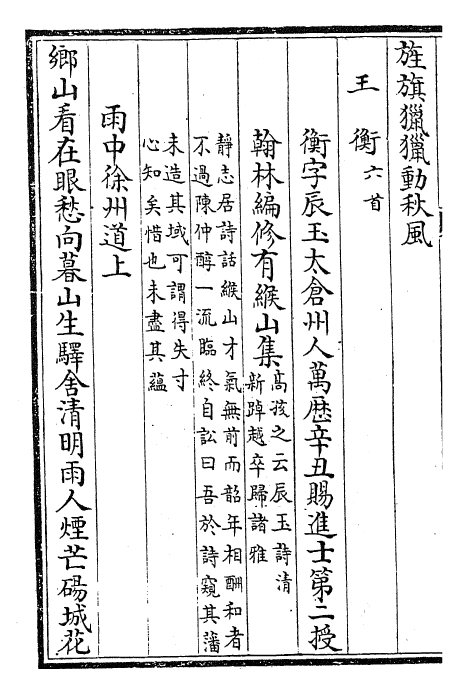 旌旗獵獵動秋風
王 衡六首
衡字辰玉太倉州人萬歴辛丑賜進士第二授
翰林編修有緱山集
高孩之云辰玉詩清
新踔越卒歸諸雅
靜志居詩話緱山才氣無前而韶年相酬和者
不過陳仲醇一流臨終自訟曰吾於詩窺其藩
未造其域可謂得失寸
心知矣惜也未盡其蘊
雨中徐州道上
鄉山看在眼愁向暮山生驛舍清明雨人煙芒碭城花